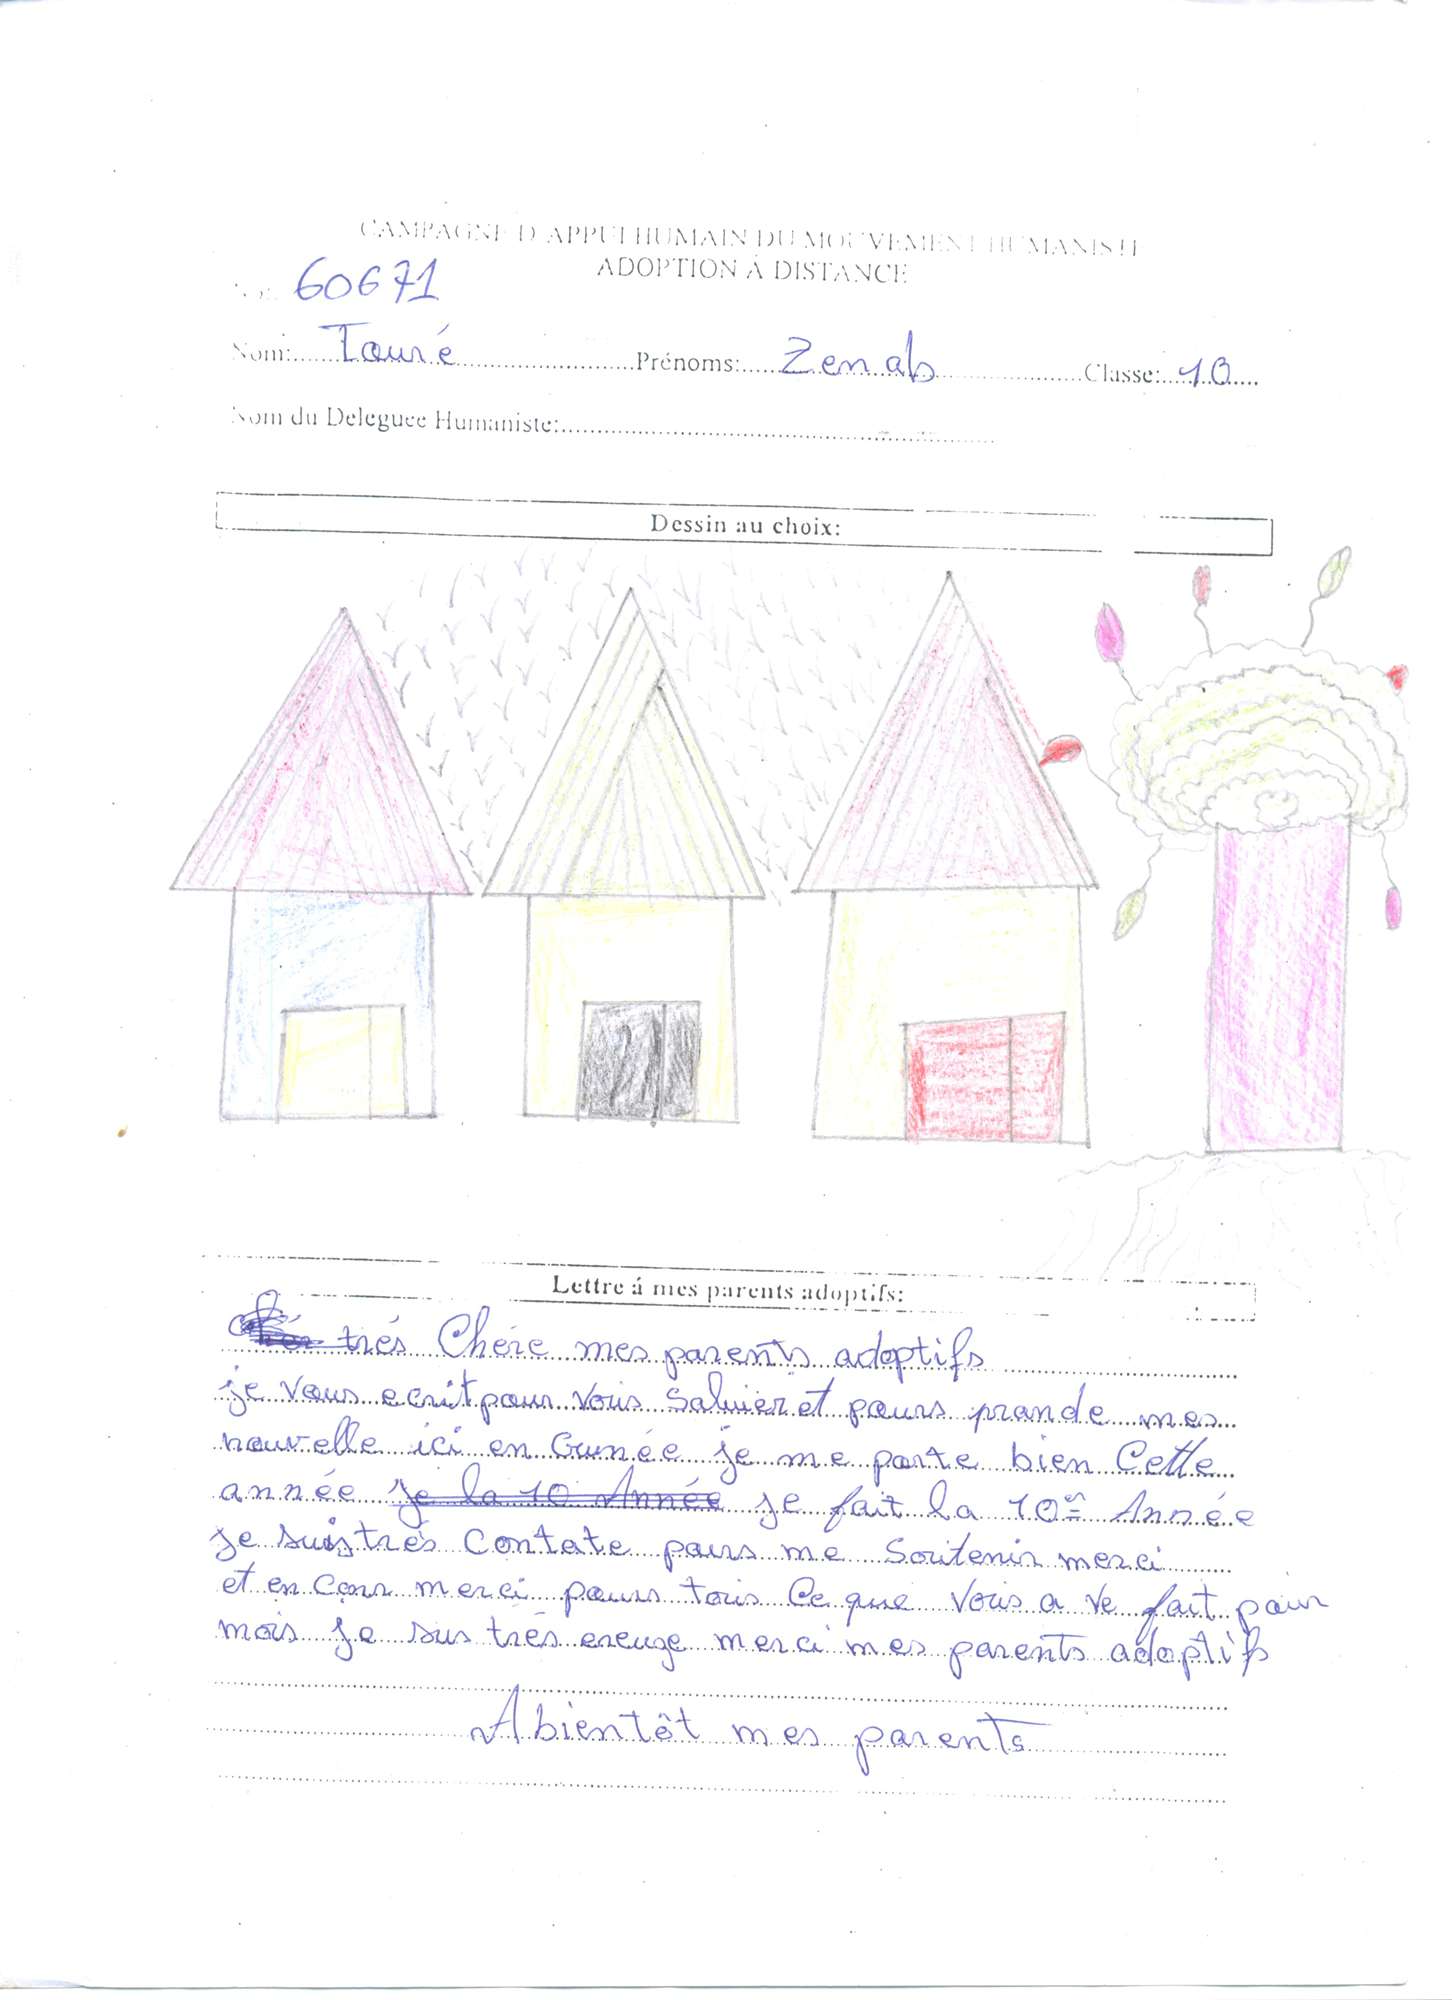 CAMPAGNE D'APPUI HUMAIN DU MOUVEMENT HUMANISTE
ADOPTION Á DISTANCE
60671
Nom: Touré Prénoms: Zenab Classe: 10
Nom du Deleguee Humaniste:
Dessin au choix:
Lettre á mes parents adoptifs:
trés Chére mes parents adoptifs
je vous ecrit pour vous saluier et pours prande mes
nouvelle ici en Guinée je me porte bien Cette
année je la 10 Année je fait la 10è Année
je suis trés Contate pours me soutenir merci
et en Corr merci pours tous Ce que vous a ve fait pour
mois je sus trés ereuze merci mes parents adoptifs
A bientôt mes parents